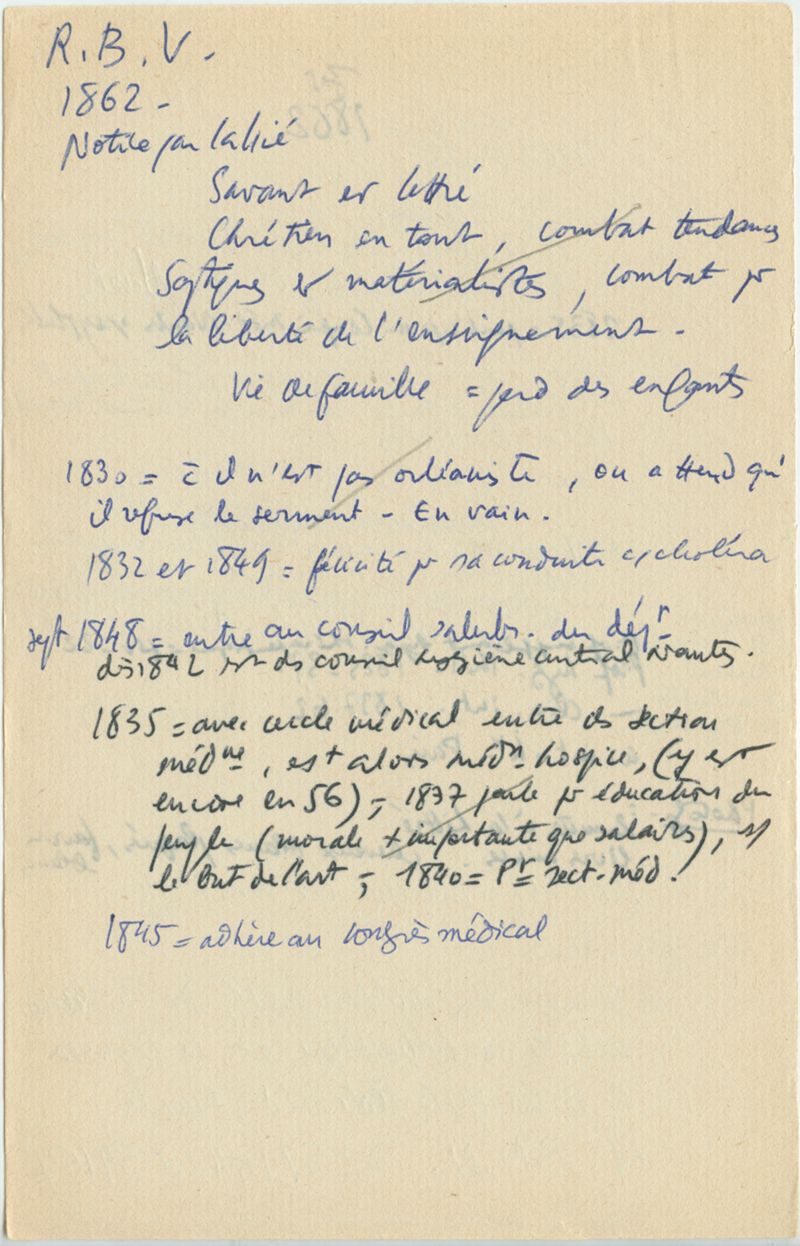 R.B.V.
1862 -
Notice par Lallié
Savant et lettré
Chrétien en tout, combat tendances
sceptiques et matérialistes, combat pr
la liberté de l'enseignement.
Vie de famille = perd des enfants
1830 = c̄ il n'est pas orléaniste, on attend qu'
il refuse le serment - En vain.
1832 et 1849 = félicité pr sa conduite choléra
sept 1848 = entre au conseil salubr. du dépt
dès 1842 est ds conseil hygiène central Nantes.
1835 = avec cercle médical entre ds section
médne, est alors médn hospice, (y est
encore en 56); 1837 parle pr éducation du
peuple (morale + importante que salaires), s/
le but de l'art; 1840 = Pr sect. méd.
1845 = adhère au congrès médical